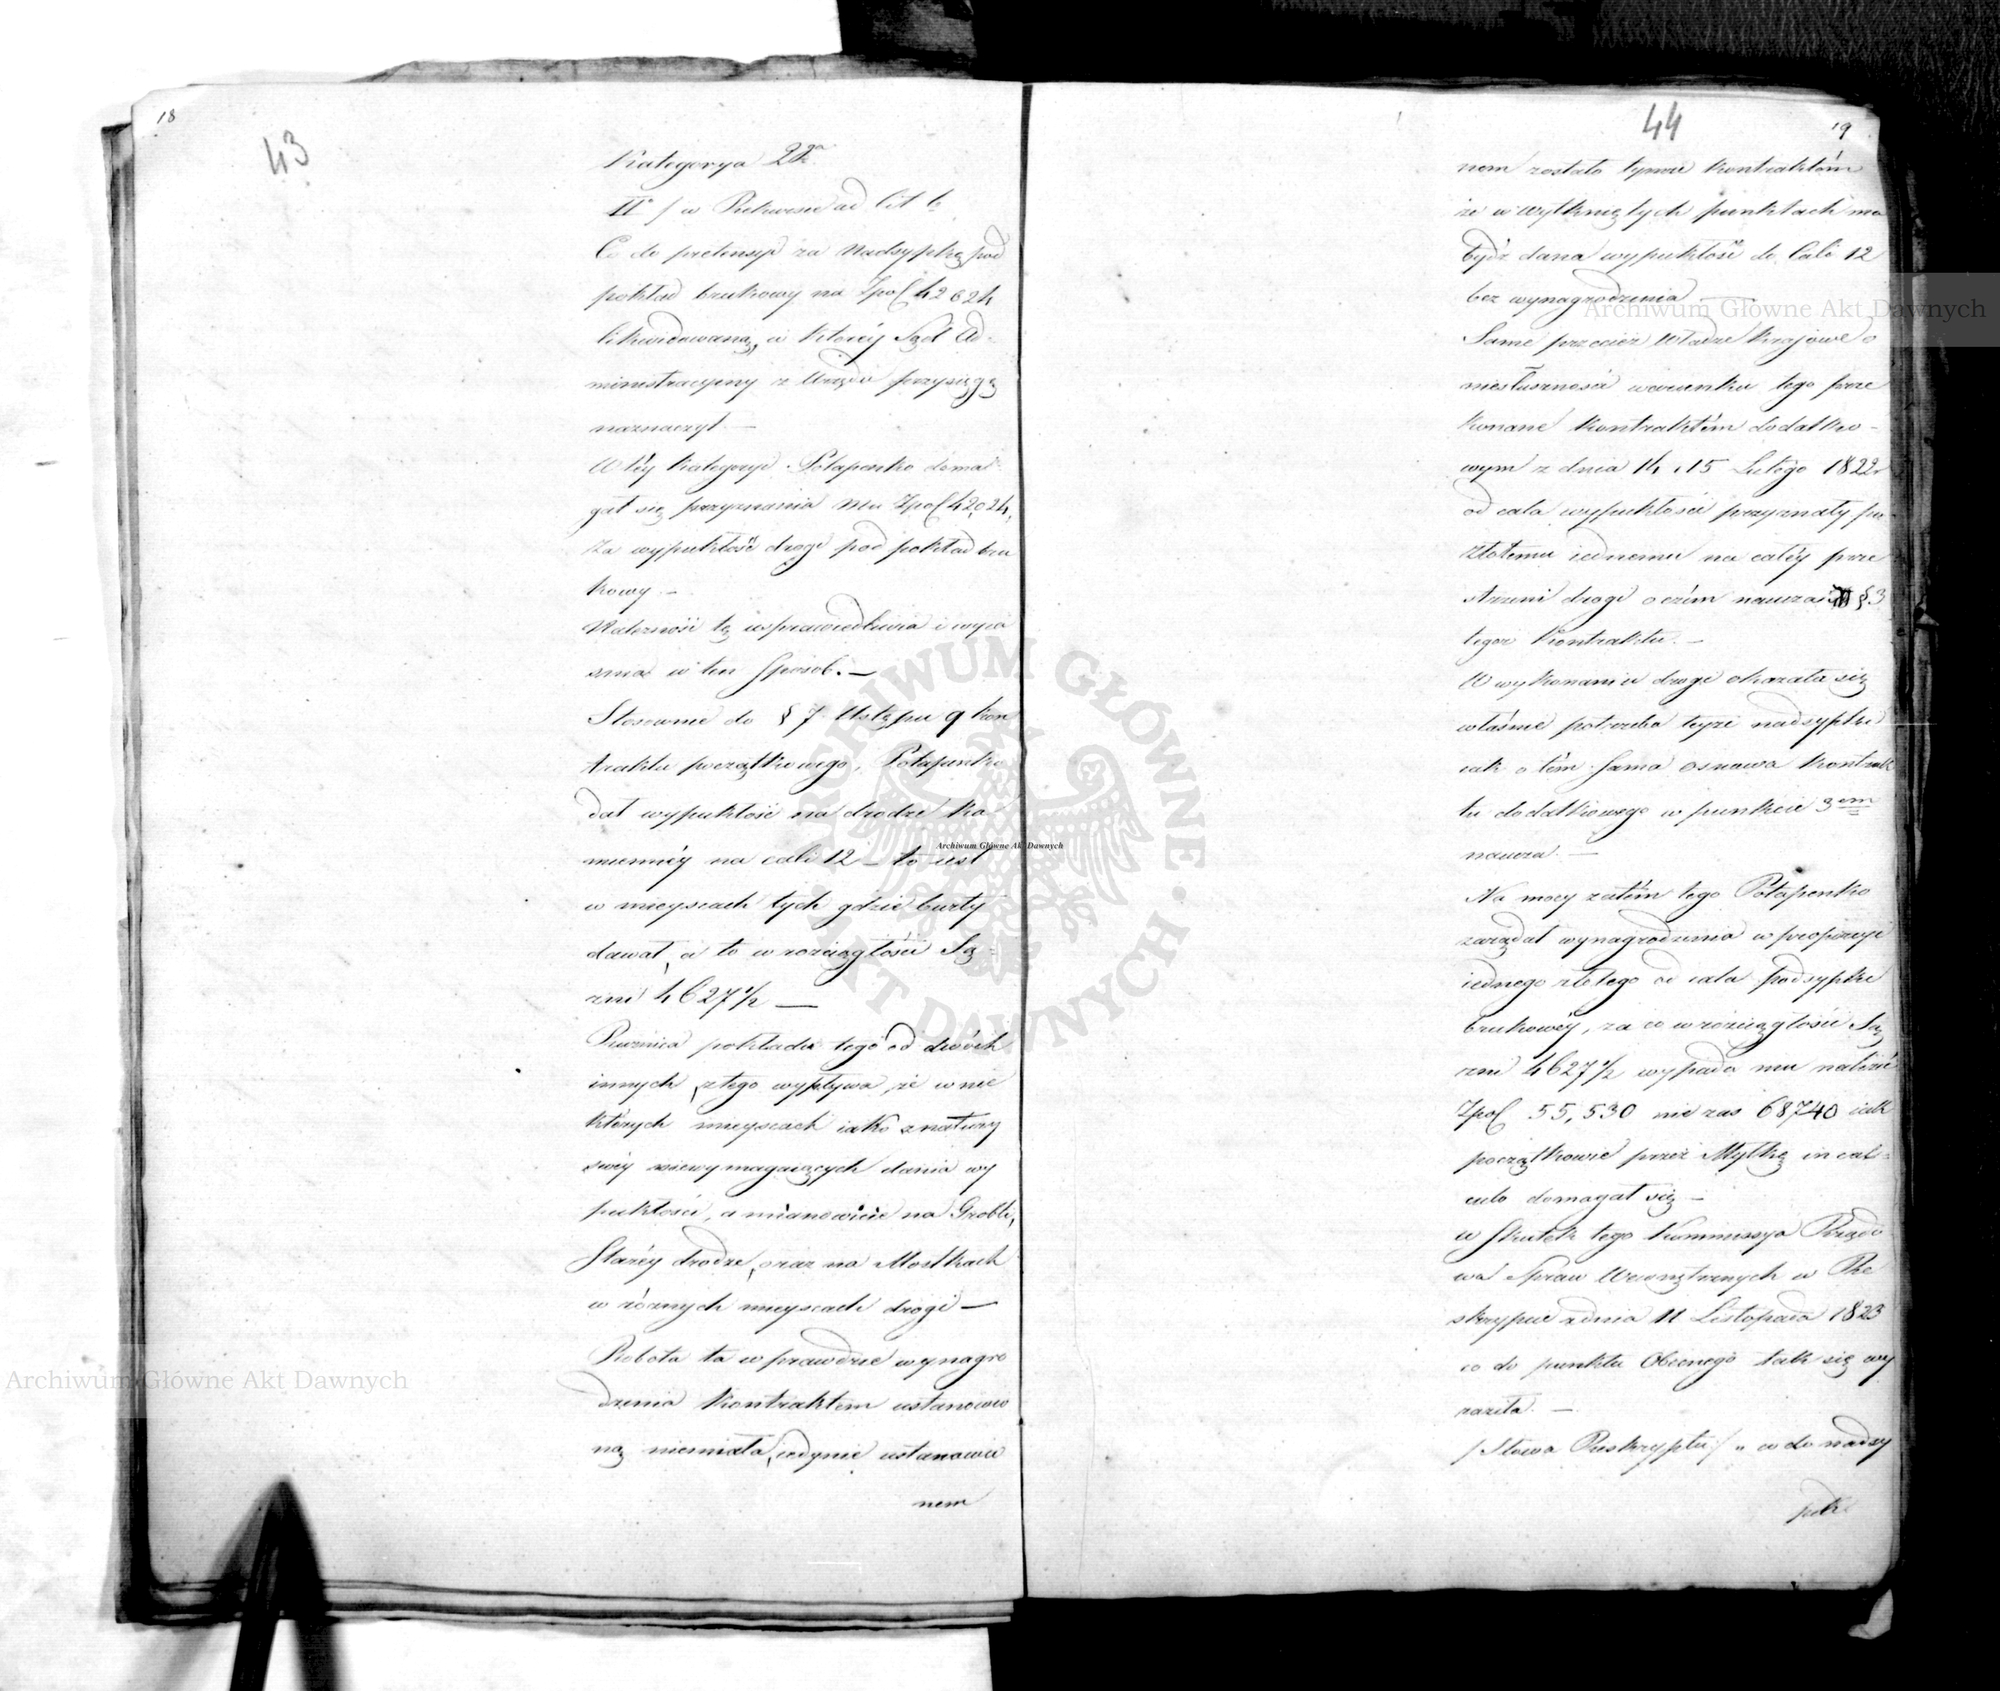 18
43
Kategorya 2ga
IIo / w Rekursie ad Lit b
Co do pretensyi za Nadsypkę pod
pokład brukowy na Zpol 42024
likwidowaną, w któréy Sąd Ad-
ministracyiny z Urzędu przysięgę
naznaczył —
W téy Kategoryi Potapenko doma
gał się przyznania mu Zpol 42,024,
za wypukłość drogi pod pokład bru
kowy. —
Należność tę usprawiedliwia i wyia
śnia w ten Sposób. —
Stosownie do § 7 Ustępu 9 kon
traktu początkowego, Potapenko
dał wypukłość na drodze ka
mienney na cali 12 — to iest
w mieyscach tych gdzie burty
dawał, a to w rozciągłości Są-
żni 4627 1/2 —
Różnica pokładu tego od dwóch
innych, z tego wypływa, że w nie
których mieyscach iako z natury
swéy niewymagaiących dania wy
pukłości, a mianowicie na Grobli,
Staréy drodze, oraz na Mostkach
w różnych mieyscach drogi —
Robota ta wprawdzie wynagro
dzenia kontraktem ustanowio
nę niemiała, iedynie ustanowio
nem
44
19
nem zostało tymże kontraktém
że w wytkniętych punktach ma
bydź dana wypukłość do Cali 12
bez wynagrodzenia —
Same przecież Władze Krajowe o
niesłuszności warunku tego prze
konane kontraktém dodatko-
wym z dnia 14 i 15 Lutego 1822 r
od cala wypukłości przyznały po
złotemu iednemu na całéy prze
strzeni drogi o czém naucza § 3
tegoż Kontraktu. —
W wykonaniu drogi okazała się
właśnie potrzeba teyże nadsypki
iak o tém sama osnowa kontrak
tu dodatkowego w punkcie 3em
naucza. —
Na mocy zatém tego Potapenko
zażądał wynagrodzenia w propozycyi
iednego złotego od cala podsypki
brukowéy, za co w rozciągłości Są
żni 4627 1/2 wypada mu należeć
Zpol 55,530 nie zaś 68740 iak
początkowie przez Myłkę in cal-
culo domagał się —
w Skutek tego Kommissya Rządo
wa Spraw Wewnętrznych w Re
skrypcie z dnia 11 Listopada 1823
co do punktu Obecnego tak się wy
raziła. —
/Słowa Reskryptu/ „ co do nadsy
pki
Archiwum Główne Akt Dawnych
Archiwum Główne Akt Dawnych
Archiwum Główne Akt Dawnych
ARCHIWUM GŁÓWNE AKT DAWNYCH